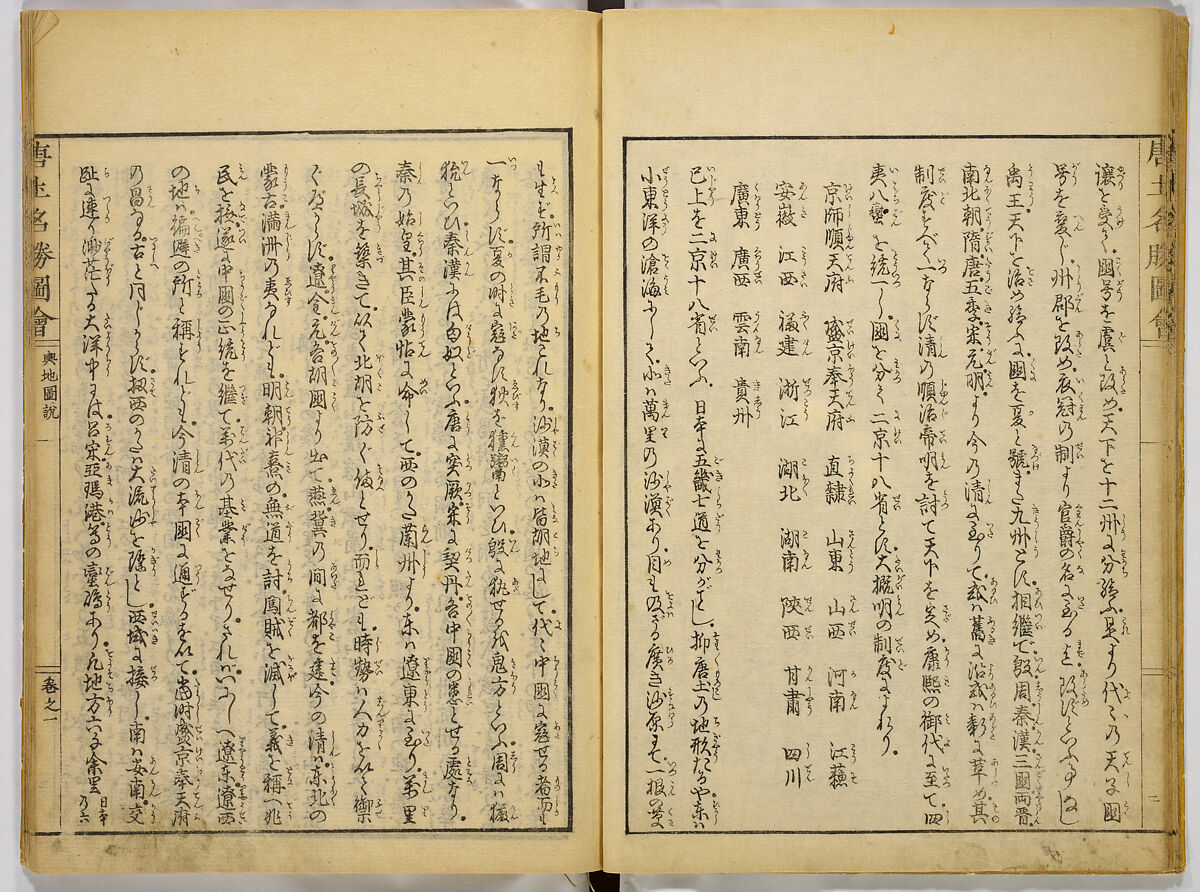 唐土名勝圖會
讓を受く。國号を虞と改め天下を十二州に分給ふ。是より代々の天子國
号を変じ。州郡を改め。衣冠の制より官爵の名に至るまで。改ずといふ事なし
禹王天下を治め給ふに國を夏と號。また九州とす。相継で。殷周秦漢。三國両晋。
南北朝隋。唐五季。宋元明。より今の清に至りて或は舊に沿或は新に革め其
制度とく一ならず。清の順治帝明を討て天下を定め。康熙の御代に至て。四
夷八蠻を統一し。國を分て二京十八省とす。大概明の制度によれり。
京師順天府 盛京奉天府 直隷 山東 山西 河南 江蘇
安徽 江西 福建 浙江 湖北 湖南 陝西 甘肅 四川
廣東 廣西 雲南 貴州
已上を二京十八省といふ。日本に五畿七道を分がごとし。抑唐土の地形たるや。東は
小東洋の滄海にして。北は萬里の沙漠あり。目も及ざる廣き沙原にて一根の草
も生ぜず。所謂不毛の地これなり。沙漠の北は皆胡地にして。代々中國に寇せる者而も
一ならず。夏の時に寇なす狄を獯鬻といひ。殷に犹せるを鬼方といふ。周には玁
狁といひ。秦漢には匈奴といふ。唐に突厥。宋に契丹。皆中國の患とせる處なり。
秦の始皇。其臣蒙恬に命じて。西のかた蘭州より。東は遼東に至り。萬里
の長城を築きて。以て北胡を防ぐ備とせり。而れども。時勢は人力を以て禦
ぐべからず。遼金元。皆胡國より出て。燕冀の間に都を建。今の清は東北の
蒙古満洲の夷なれども。明朝衰季の無道を討。闖賊を滅して。義を稱へ兆
民を撫。遂に中國の正統を継て。萬代の基業をなせり。されば。いにしへ遼東遼西
の地は。偏避の所と稱すれども。今清の本國に通ずるを以て。當時盛京奉天府
の昌なる。古と同じからず。扨西のかたは大流沙を際とし。西域に接し。南は安南。交
趾に連り渺茫たる大洋中には。呂宋亞瑪港等の臺嶋あり。凡地方六千余里 日本の六
唐土名勝圖會
輿地圖説 一
卷之一